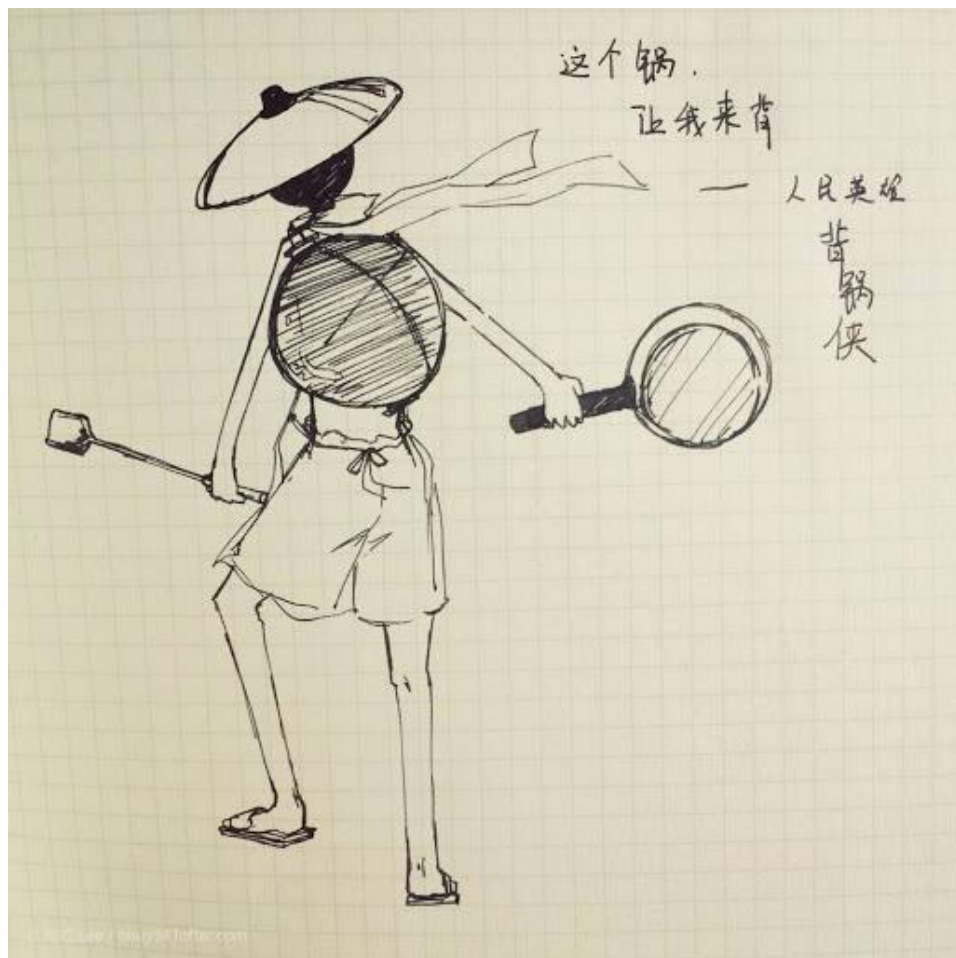 这个锅.
让我来背
— 人民英雄
背
锅
侠